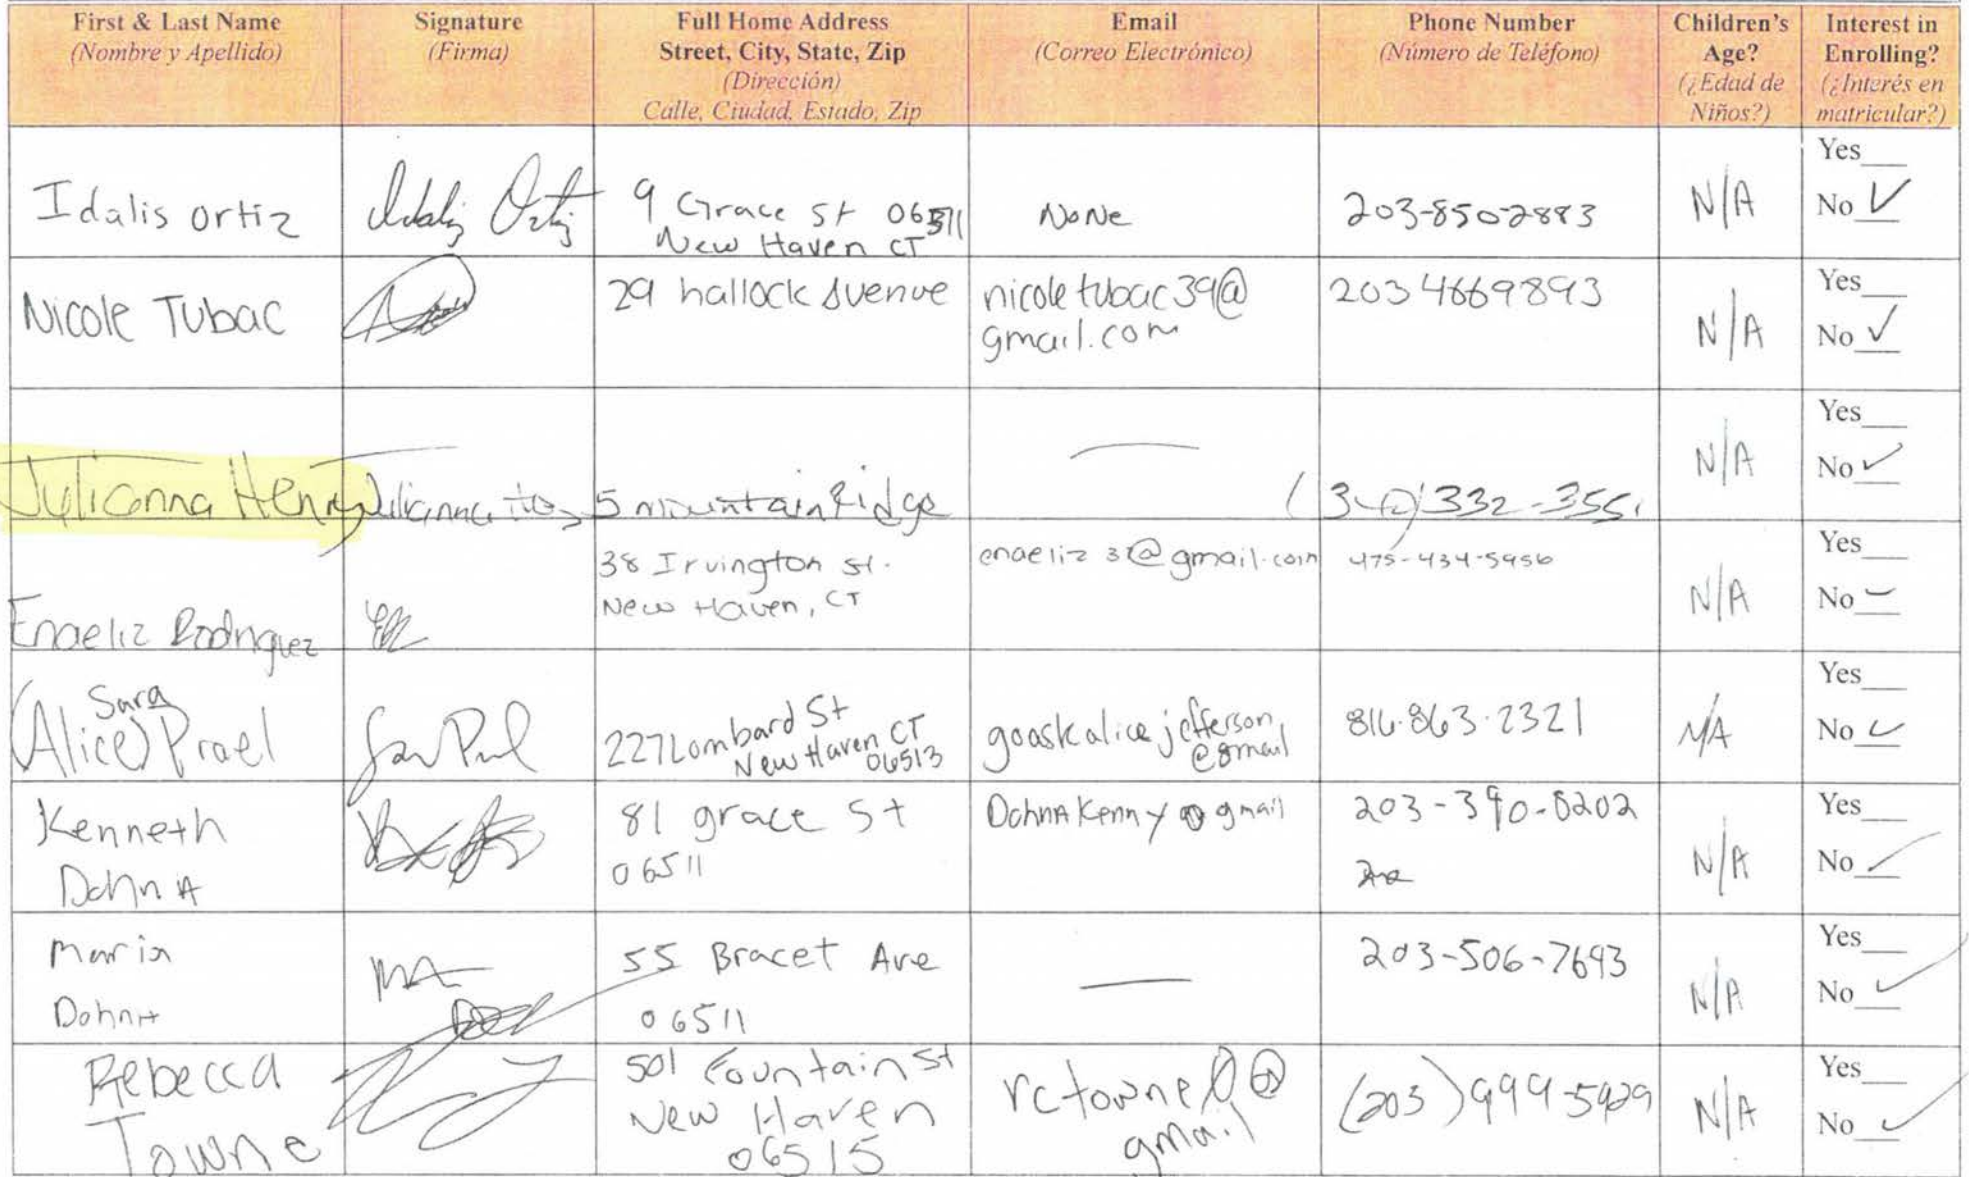 First & Last Name
(Nombre y Apellido)
Signature
(Firma)
Full Home Address
Street, City, State, Zip
(Dirección)
Calle, Ciudad, Estado, Zip
Email
(Correo Electrónico)
Phone Number
(Número de Teléfono)
Children's
Age?
(¿Edad de
Niños?)
Interest in
Enrolling?
(¿Interés en
matricular?)
Idalis ortiz
Idaliz Ortiz
9 Grace St 06511
New Haven CT
NoNe
203-850-2883
N/A
Yes
No ✓
Nicole Tubac
29 hallock Avenue
nicoletubac39@
gmail.com
203 4669893
N/A
Yes
No ✓
Julianna Henry
Julianna
5 mountain Ridge
332-355
N/A
Yes
No ✓
Enaeliz Rodriguez
ER
38 Irvington st.
New Haven, CT
enaeliz @gmail.com
475-434-5956
N/A
Yes
No
Sara
(Alice) Prael
227 Lombard St
New Haven CT
06513
goaskalicejefferson
@gmail
816.863.2321
N/A
Yes
No ✓
Kenneth
DohnA
81 grace St
06511
DohnAKenny@gmail
203-390-8202
N/A
Yes
No ✓
Maria
DohnA
MA
55 Bracet Ave
06511
203-506-7693
N/A
Yes
No ✓
Rebecca
Towne
501 Fountain St
New Haven
06515
@
gmail
(203) 999-5929
N/A
Yes
No ✓